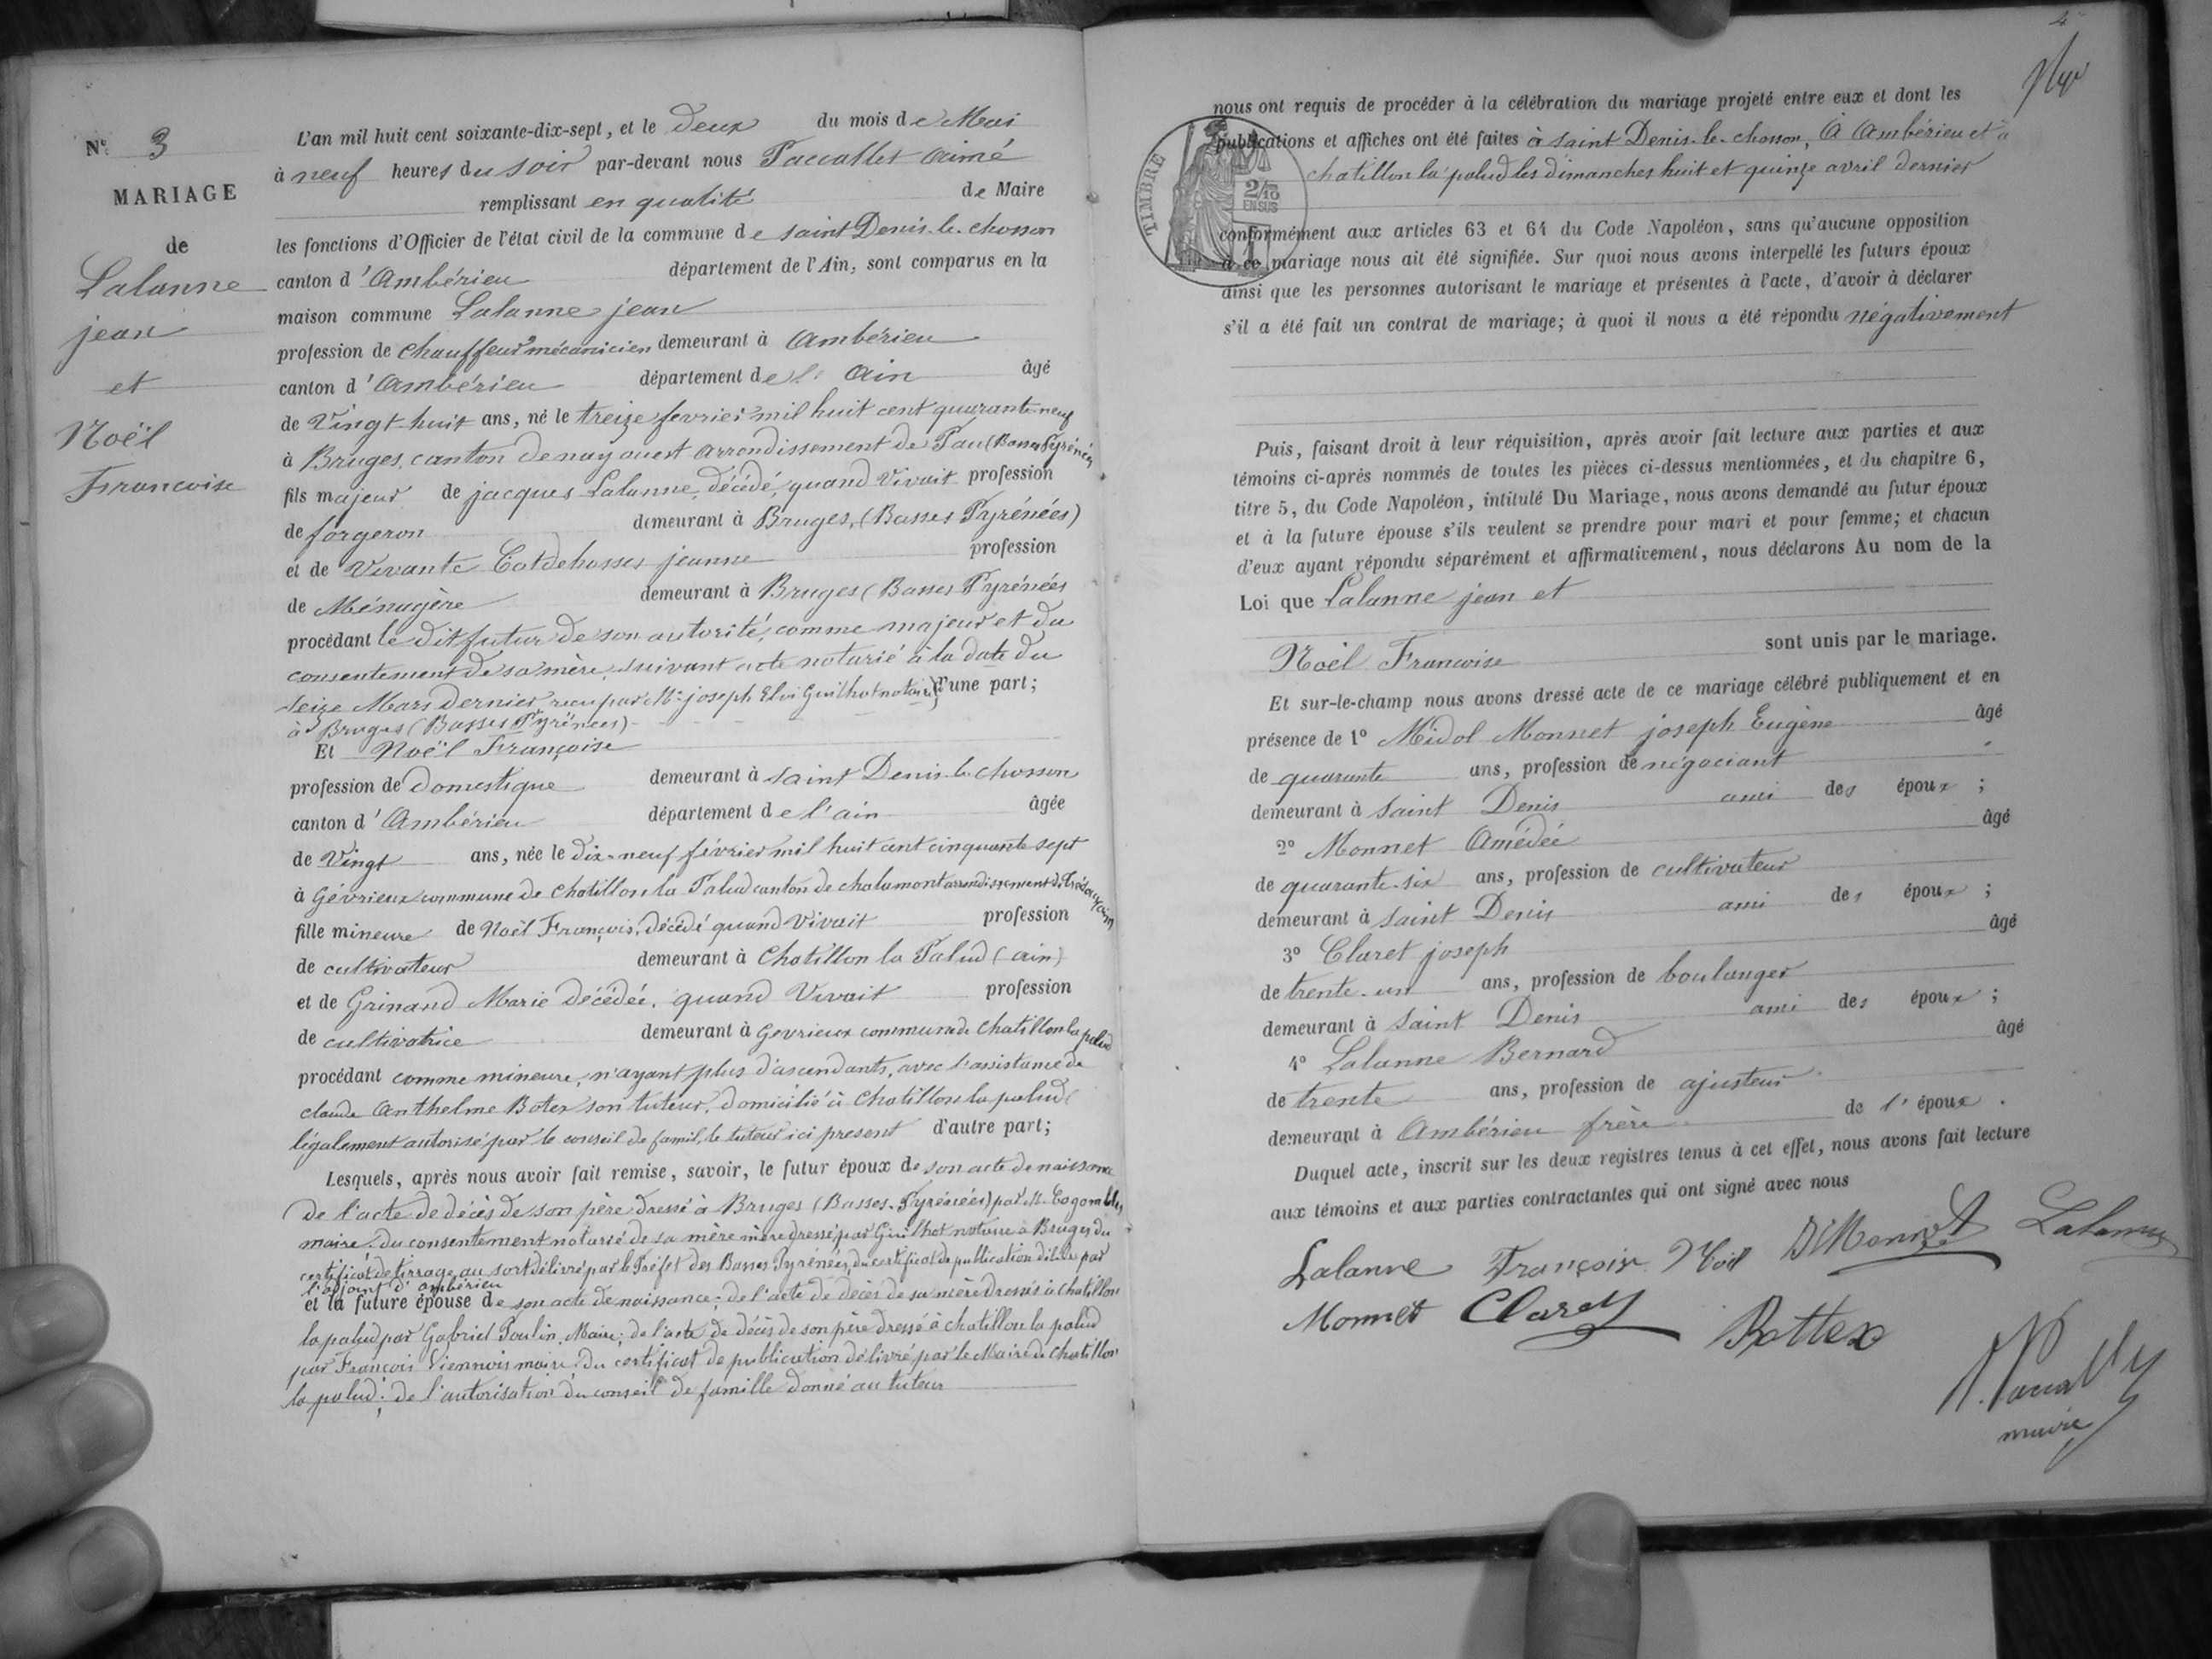 N° 3
MARIAGE
de
Lalanne
jean
et
Noël
Francoise
L'an mil huit cent soixante-dix-sept, et le deux du mois de Mai
à neuf heures du soir par-devant nous Paccallet Aimé
remplissant en qualité de Maire
les fonctions d'Officier de l'état civil de la commune de saint Denis-le-chosson
canton d'Ambérieu département de l'Ain, sont comparus en la
maison commune Lalanne jean
profession de chauffeur mécanicien demeurant à Ambérieu
canton d'Ambérieu département de l' Ain âgé
de Vingt-huit ans, né le treize fevrier mil huit cent quarante-neuf
à Bruges, canton de nay ouest arrondissement de Pau (Basses Pyrénées
fils majeur de jacques Lalanne, décédé, quand Vivait profession
de forgeron demeurant à Bruges, (Basses Pyrénées)
et de Vivante Cotdehosses jeanne profession
de Ménagère demeurant à Bruges (Basses Pyrénées
procédant le dit futur de son autorité, comme majeur et du
consentement de sa mère, suivant acte notarié à la date du
seize Mars dernier, recu par Me joseph Eloi Guilhot notaire d'une part;
à Bruges (Basses Pyrénées)
Et Noël Françoise
profession de domestique demeurant à saint Denis-le chosson
canton d'Ambérieu département de l'ain âgée
de Vingt ans, née le dix-neuf février mil huit cent cinquante sept
à Gévrieux commune de chatillon la Palud canton de chalamont arrondissement de Trévoux ain
fille mineure de Noël François, décédé quand Vivait profession
de cultivateur demeurant à Chatillon la Palud (ain)
et de Grinand Marie décédée, quand Vivait profession
de cultivatrice demeurant à Gevrieux commune de Chatillon la palud
procédant comme mineure, n'ayant plus d'ascendants, avec l'assistance de
claude Anthelme Botex son tuteur, domicilié à Chatillon la palud
légalement autorisé par le conseil de famil, le tuteur ici present d'autre part;
Lesquels, après nous avoir fait remise, savoir, le futur époux de son acte de naissance
de l'acte de décès de son père dressé à Bruges (Basses-Pyrénées) par M.
maire. du consentement notarié de sa mère mère dressé par Guilhot notaire à Bruges du
certificat de tirrage au sort délivré par le Préfet des Basses Pyrénées, du certificat de publication délivré par
l'adjoint d'ambérieu
et la future épouse de son acte de naissance; de l'acte de décès de sa mère dressés à Chatillon
la palud par Gabriel Poulin, Maire; de l'acte de décès de son père dressé à chatillon la palud
par François Viennois maire; du certificat de publication délivré par le Maire de Chatillon
la palud; de l'autorisation du conseil de famille donné au tuteur
4
nous ont requis de procéder à la célébration du mariage projeté entre eux et dont les
publications et affiches ont été faites à saint Denis-le-chosson, à Ambérieu et à
chatillon la palud les dimanches huit et quinze avril dernier
TIMBRE
2/10
EN SUS
conformément aux articles 63 et 64 du Code Napoléon, sans qu'aucune opposition
à ce mariage nous ait été signifiée. Sur quoi nous avons interpellé les futurs époux
ainsi que les personnes autorisant le mariage et présentes à l'acte, d'avoir à déclarer
s'il a été fait un contrat de mariage; à quoi il nous a été répondu négativement
Puis, faisant droit à leur réquisition, après avoir fait lecture aux parties et aux
témoins ci-après nommés de toutes les pièces ci-dessus mentionnées, et du chapitre 6,
titre 5, du Code Napoléon, intitulé Du Mariage, nous avons demandé au futur époux
et à la future épouse s'ils veulent se prendre pour mari et pour femme; et chacun
d'eux ayant répondu séparément et affirmativement, nous déclarons Au nom de la
Loi que Lalanne jean et
Noël Francoise sont unis par le mariage.
Et sur-le-champ nous avons dressé acte de ce mariage célébré publiquement et en
présence de 1° Midol Monnet joseph Eugène âgé
de quarante ans, profession de négociant
demeurant à saint Denis ami des époux ;
2° Monnet Amédée âgé
de quarante-six ans, profession de cultivateur
demeurant à saint Denis ami des époux ;
3° Claret joseph âgé
de trente-un ans, profession de boulanger
demeurant à saint Denis ami des époux ;
4° Lalanne Bernard âgé
de trente ans, profession de ajusteur
demeurant à Ambérieu frère de l'époux .
Duquel acte, inscrit sur les deux registres tenus à cet effet, nous avons fait lecture
aux témoins et aux parties contractantes qui ont signé avec nous
Lalanne Françoise Noël Monnet Lalanne
Monnet Claret Bottex
maire